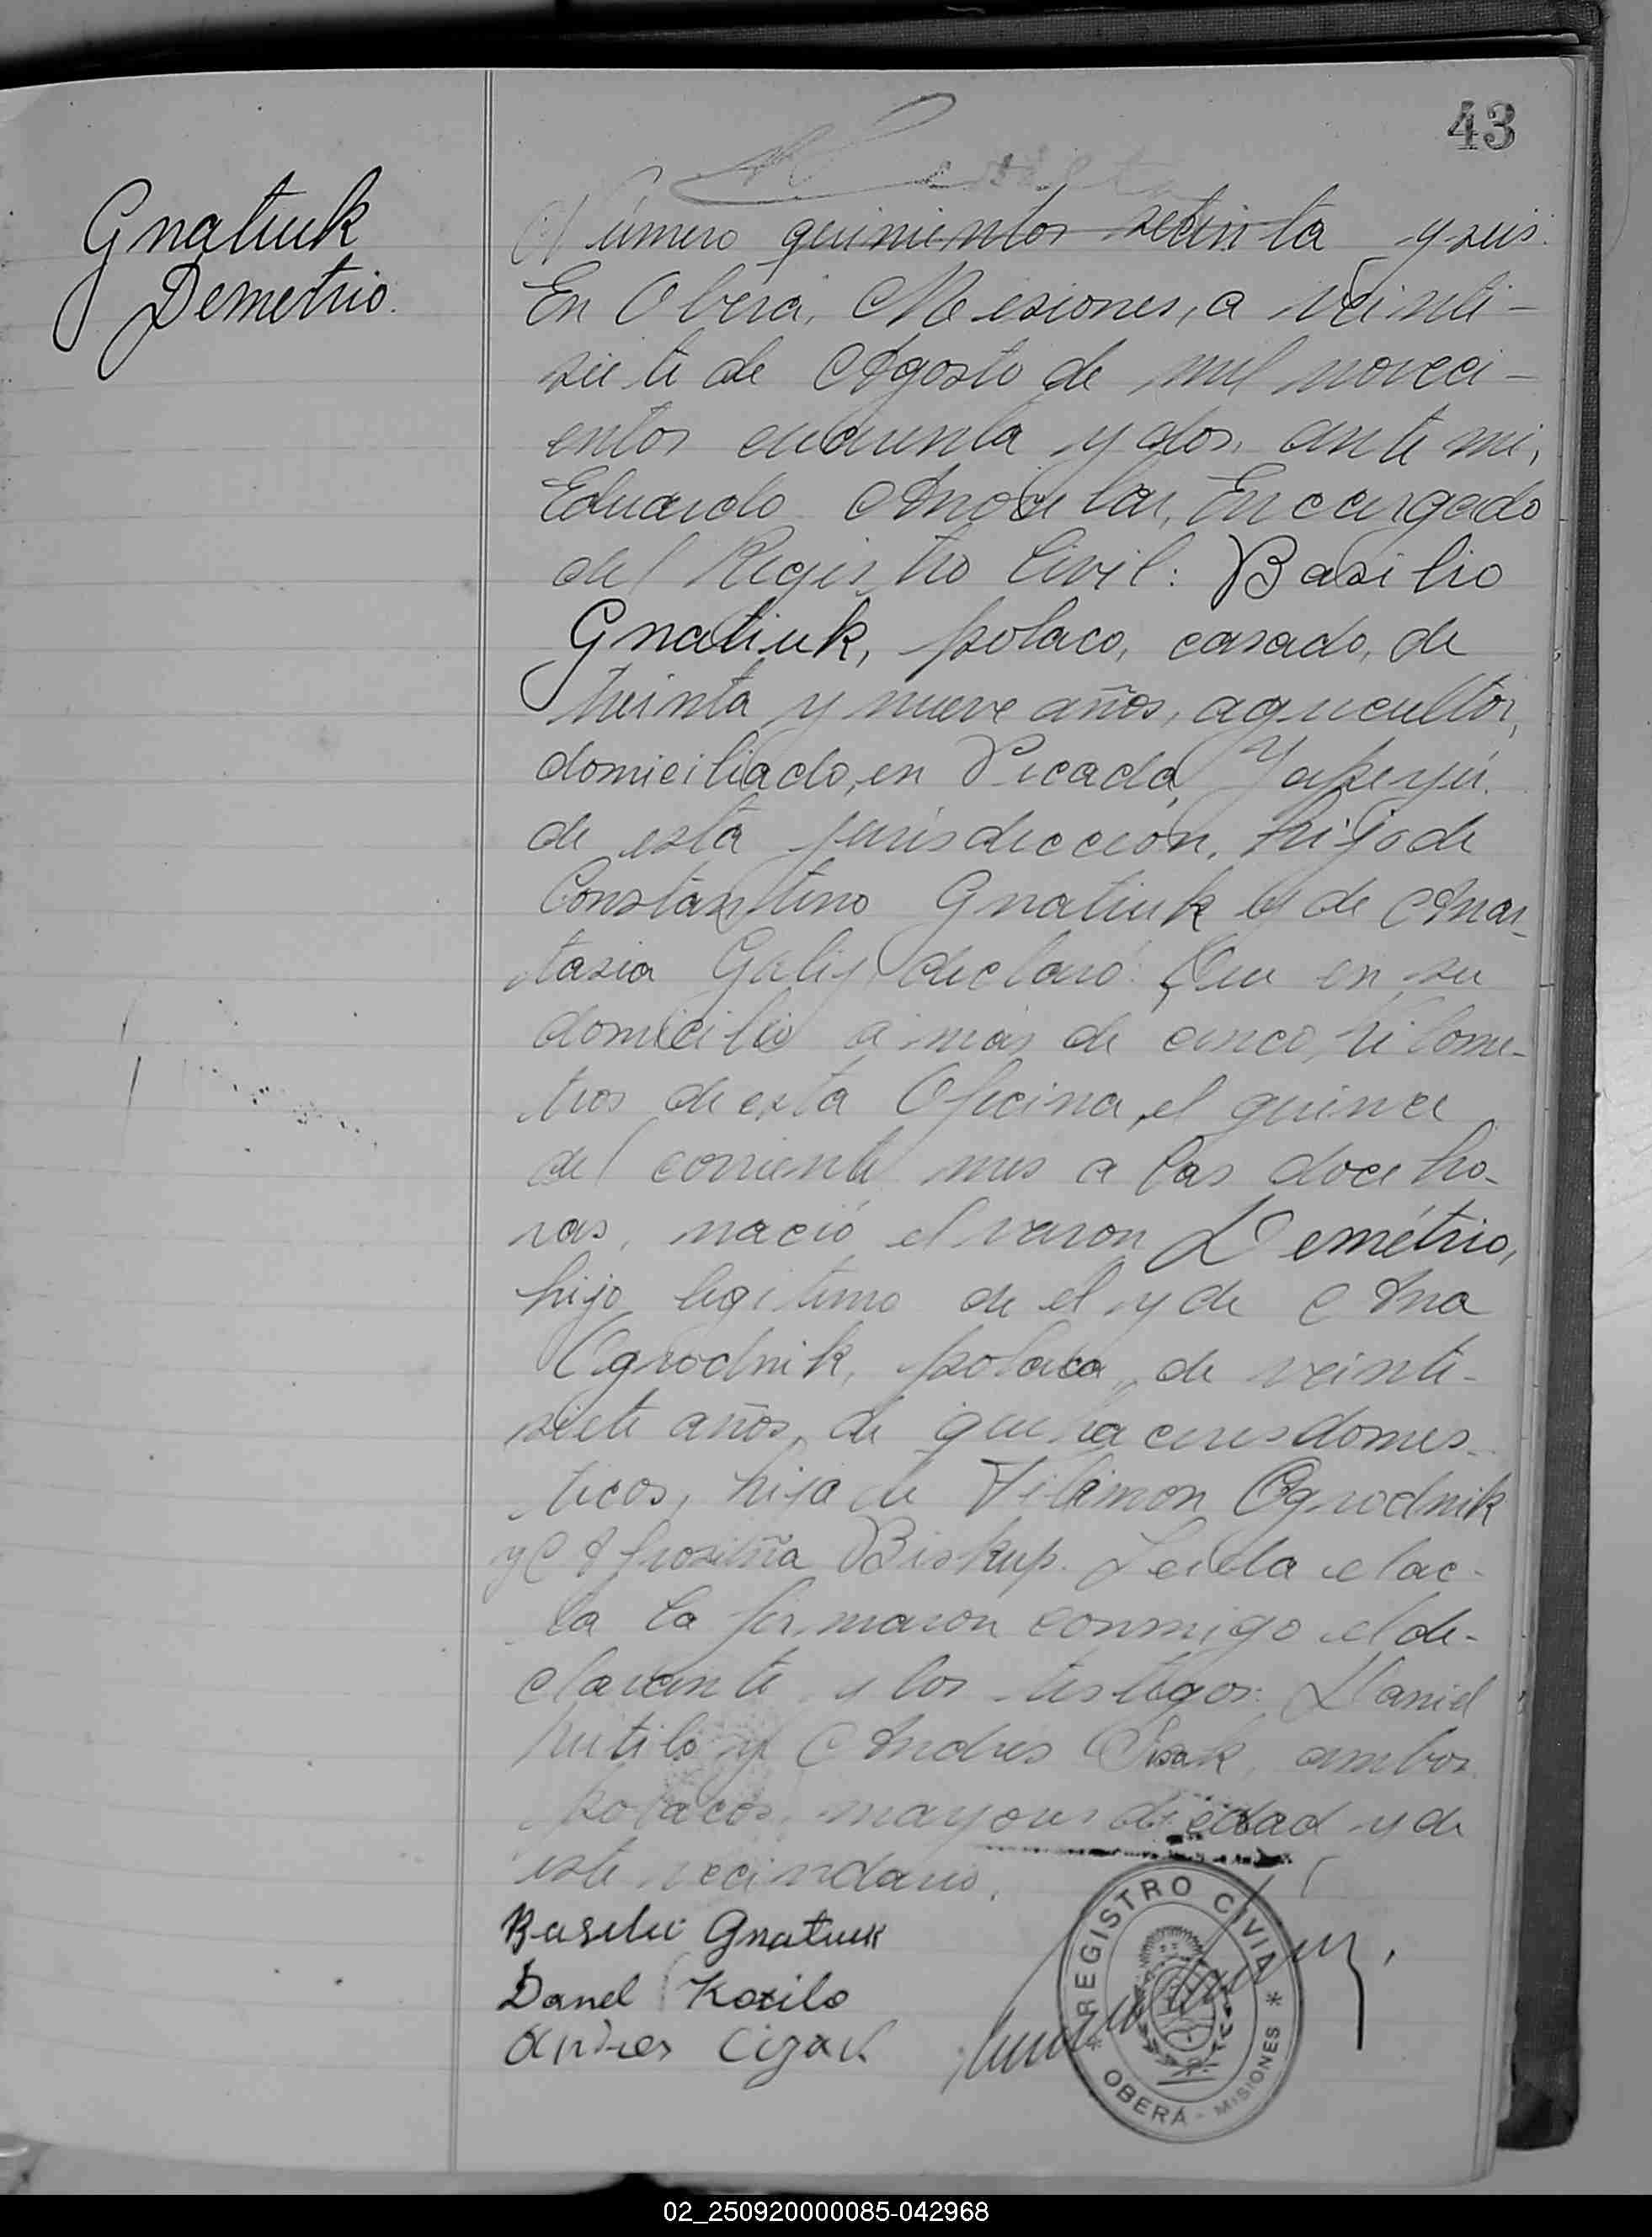 43
Gnatiuk
Demetrio.
Número quinientos setenta y seis.
En Oberá, Misiones, a veinti-
siete de Agosto de mil noveci-
entos cuarenta y dos, ante mi,
Eduardo Encargado
del Registro Civil: Basilio
Gnatiuk, polaco, casado, de
treinta y nueve años, agricultor,
domiciliado, en Picada Yapeyú.
de esta jurisdicción, hijo de
Constantino Gnatiuk y de Anas-
tasia Galij declaró: Que en su
domicilio a más de cinco kilome-
tros de esta Oficina, el quince
del corriente mes a las doce ho-
ras, nació el varon Demétrio,
hijo legitimo de el y de Ana
Ogrodnik, polaca, de veinti-
siete años, de quehaceres domes-
ticos, hija de Filimon Ogrodnik
y Biskup. Leida el ac-
ta la firmaron conmigo el de-
clarante y los testigos: Daniel
y Andres ambos
polacos, mayores de edad y de
este vecindario.
Basilio Gnatiuk
Danel
Andres Cizak
REGISTRO CIVIL
* OBERÁ - MISIONES *
02_250920000085-042968